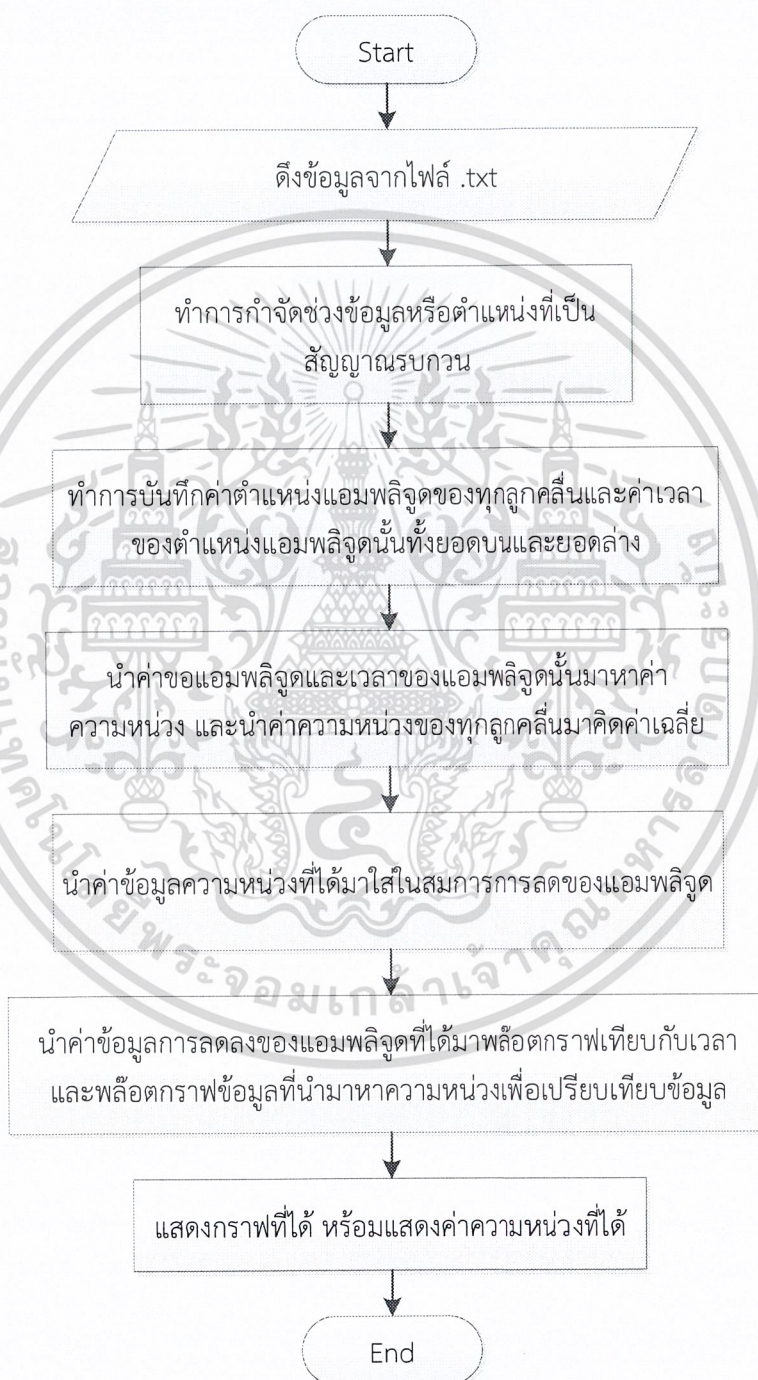 Start
ดึงข้อมูลจากไฟล์ .txt
ทำการกำจัดช่วงข้อมูลหรือตำแหน่งที่เป็น
สัญญาณรบกวน
ทำการบันทึกค่าตำแหน่งแอมพลิจูดของทุกลูกคลื่นและค่าเวลา
ของตำแหน่งแอมพลิจูดนั้นทั้งยอดบนและยอดล่าง
นำค่าขอแอมพลิจูดและเวลาของแอมพลิจูดนั้นมาหาค่า
ความหน่วง และนำค่าความหน่วงของทุกลูกคลื่นมาคิดค่าเฉลี่ย
นำค่าข้อมูลความหน่วงที่ได้มาใส่ในสมการการลดของแอมพลิจูด
นำค่าข้อมูลการลดลงของแอมพลิจูดที่ได้มาพล๊อตกราฟเทียบกับเวลา
และพล๊อตกราฟข้อมูลที่นำมาหาความหน่วงเพื่อเปรียบเทียบข้อมูล
แสดงกราฟที่ได้ หร้อมแสดงค่าความหน่วงที่ได้
End